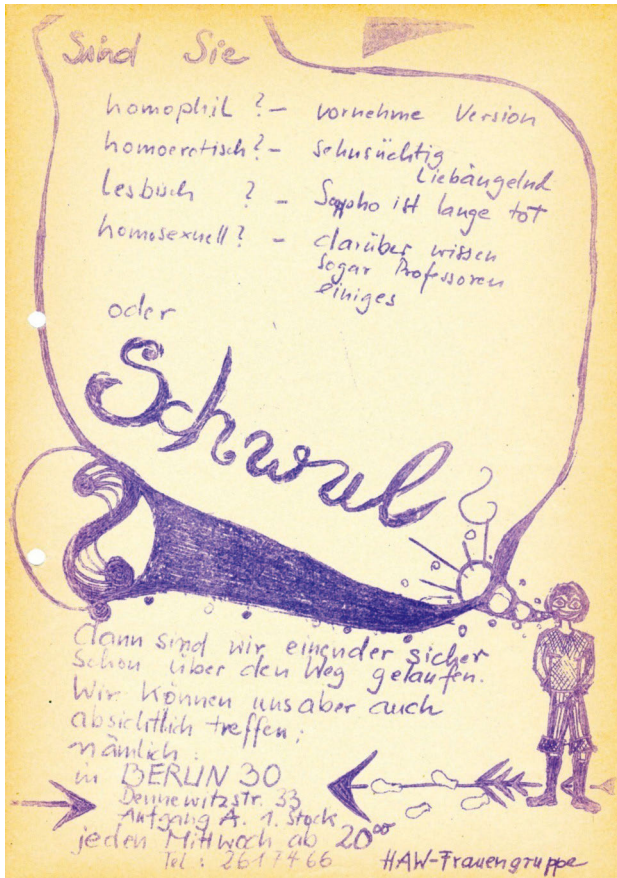 Sind Sie
homophil ? – vornehme Version
homoerotisch ? – sehnsüchtig
Liebäugelnd
Lesbisch ? – Sappho ist lange tot
homosexuell ? – darüber wissen
sogar Professoren
einiges
oder
Schwul ?
dann sind wir einender sicher
schon über den Weg gelaufen.
Wir können uns aber auch
absichtlich treffen;
nämlich :
in BERLIN 30
Dennewitzstr. 33
Aufgang A. 1. Stock
jeden Mittwoch ab 20⁰⁰
Tel : 2617466
HAW-Frauengruppe